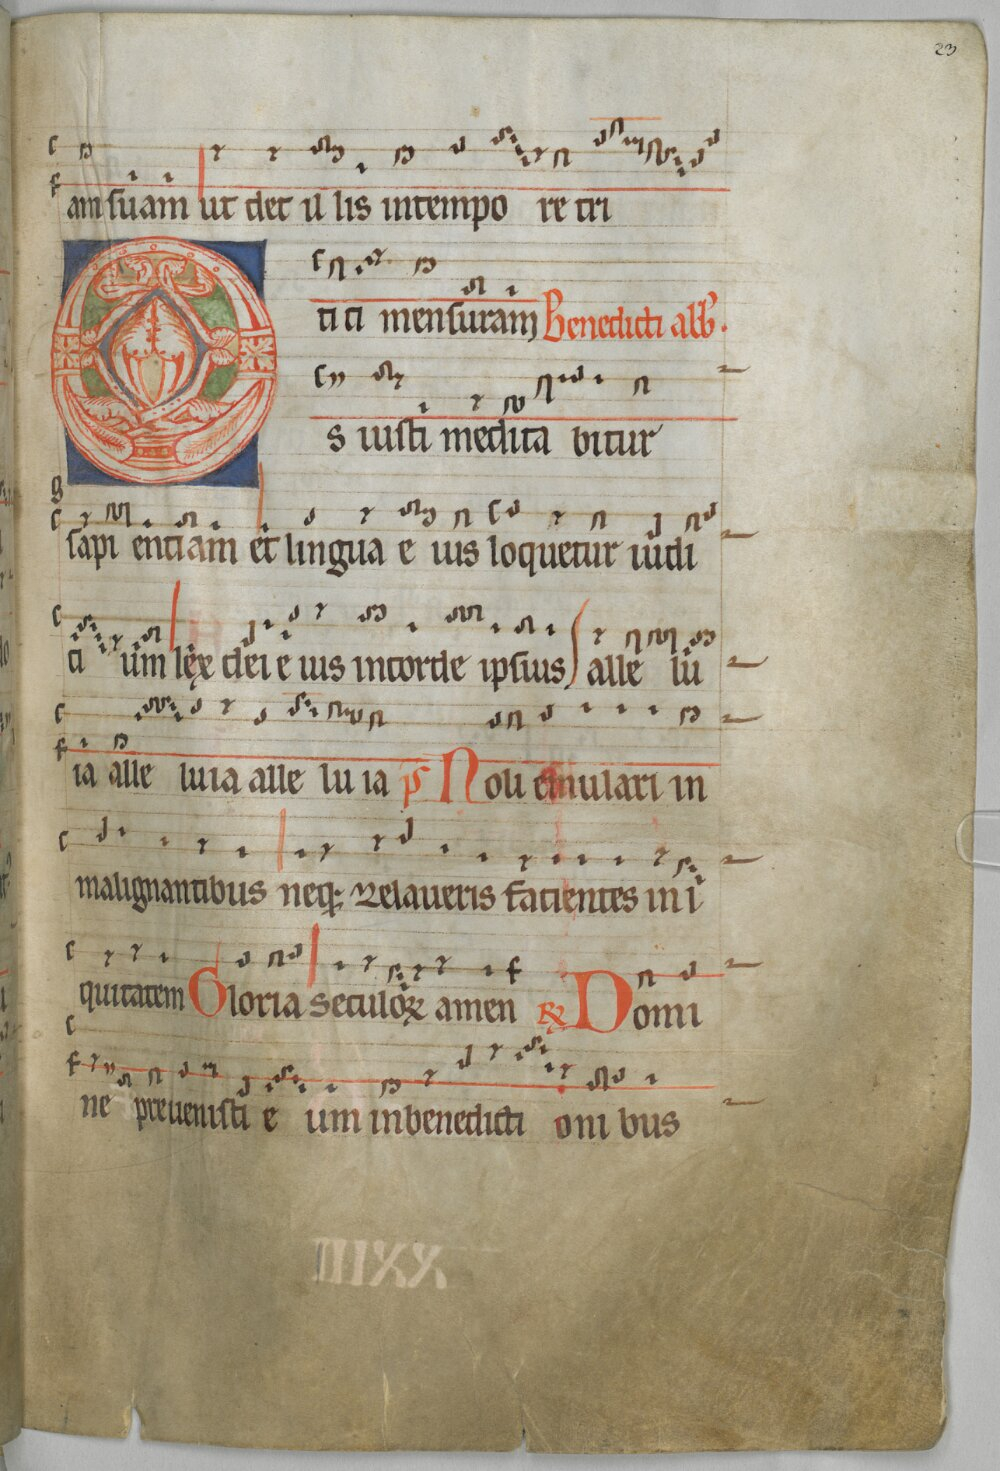 23
am suam ut det il lis intempo re tri
tici mensuram Benedicti abb.
Os iusti medita bitur
sapi entiam et lingua e ius loquetur iudi
ci um lex dei e ius incorde ipsius alle lu
ia alle luia alle lu ia ps Noli emulari in
malignantibus neq; zelaueris facientes in i
quitatem Gloria seculoꝝ amen ℟ Domi
ne preuenisti e um inbenedicti oni bus
XXIII